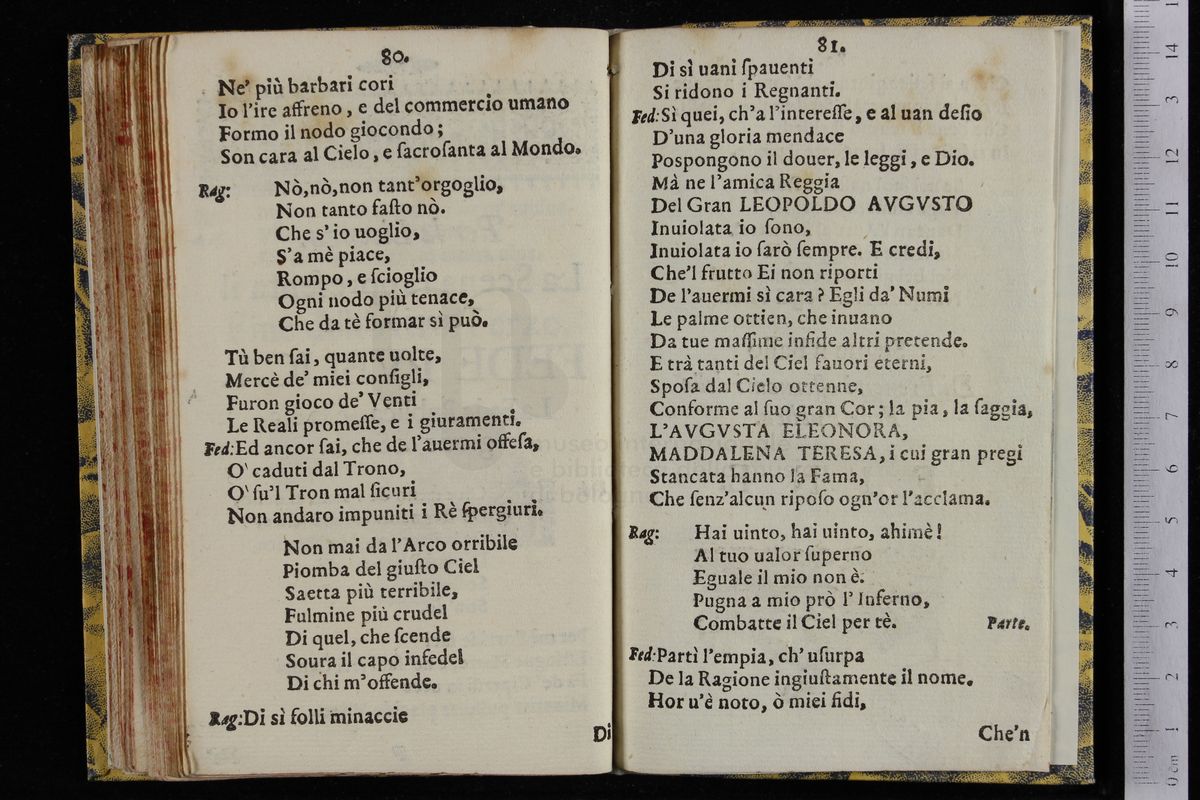 80.
Ne' più barbari cori
Io l'ire affreno, e del commercio umano
Formo il nodo giocondo;
Son cara al Cielo, e ſacroſanta al Mondo.
Rag: Nò, nò, non tant'orgoglio,
Non tanto faſto nò.
Che s' io uoglio,
S'a mè piace,
Rompo, e ſcioglio
Ogni nodo più tenace,
Che da tè formar sì può.
Tù ben ſai, quante uolte,
Mercè de' miei conſigli,
Furon gioco de' Venti
Le Reali promeſſe, e i giuramenti.
Fed: Ed ancor ſai, che de l'auermi offeſa,
O' caduti dal Trono,
O' ſu'l Tron mal ſicuri
Non andaro impuniti i Rè ſpergiuri.
Non mai da l'Arco orribile
Piomba del giuſto Ciel
Saetta più terribile,
Fulmine più crudel
Di quel, che ſcende
Soura il capo infedel
Di chi m'offende.
Rag: Di sì folli minaccie
Di
81.
Di sì uani ſpauenti
Si ridono i Regnanti.
Fed: Sì quei, ch'a l'intereſſe, e al uan deſio
D'una gloria mendace
Pospongono il douer, le leggi, e Dio.
Mà ne l'amica Reggia
Del Gran LEOPOLDO AVGVSTO
Inuiolata io ſono,
Inuiolata io ſarò ſempre. E credi,
Che'l frutto Ei non riporti
De l'auermi sì cara? Egli da' Numi
Le palme ottien, che inuano
Da tue maſſime infide altri pretende.
E trà tanti del Ciel fauori eterni,
Spoſa dal Cielo ottenne,
Conforme al ſuo gran Cor; la pia, la ſaggia,
L'AVGVSTA ELEONORA,
MADDALENA TERESA, i cui gran pregi
Stancata hanno la Fama,
Che ſenz'alcun ripoſo ogn'or l'acclama.
Rag: Hai uinto, hai uinto, ahimè!
Al tuo ualor ſuperno
Eguale il mio non è.
Pugna a mio prò l' Inferno,
Combatte il Ciel per tè. Parte.
Fed: Partì l'empia, ch' uſurpa
De la Ragione ingiuſtamente il nome.
Hor u'è noto, ò miei fidi,
Che'n